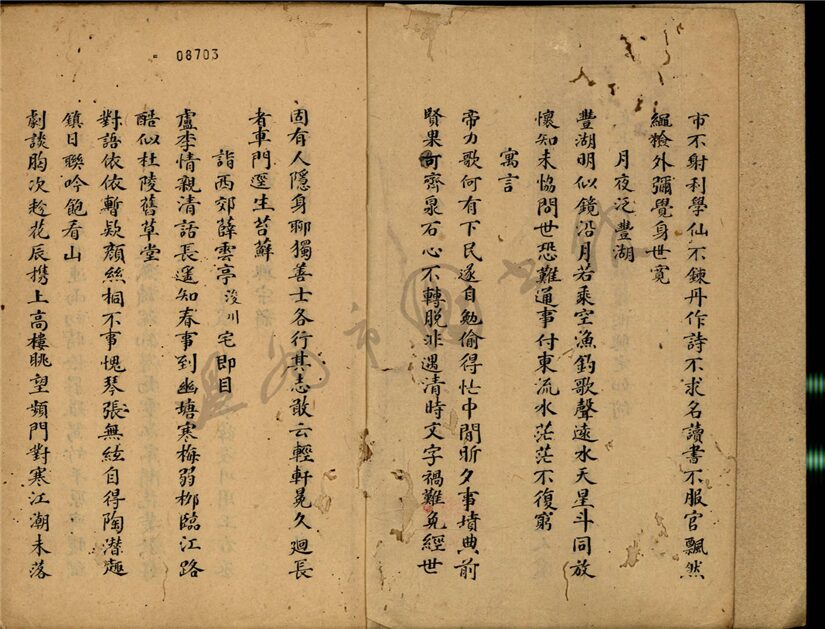 市不射利學仙不鍊丹作詩不求名讀書不服官飄然
繩撿外彌覺身世寬
月夜泛豐湖
豐湖明似鏡沿月若乘空漁釣歌聲遠水天星斗同放
懷知未協問世恐難通事付東流水茫茫不復窮
寓言
帝力歌何有下民遂自勉偷得忙中閒昕夕事墳典前
賢果可齊泉石心不轉脫非遇清時文字禍難免經世
08703
固有人隱身聊獨善士各行其志敢云輕軒冕久廻長
者車門逕生苔蘇
詣西郊薛雲亭浚川宅即目
盧李情親清話長遥知春事到幽塘寒梅弱柳臨江路
酷似杜陵舊草堂
對語依依暫欵顏絲桐不事愧琴張無絃自得陶潜趣
鎮日聯吟飽看山
劇談胸次趁花辰携上高樓眺望頻門對寒江潮未落